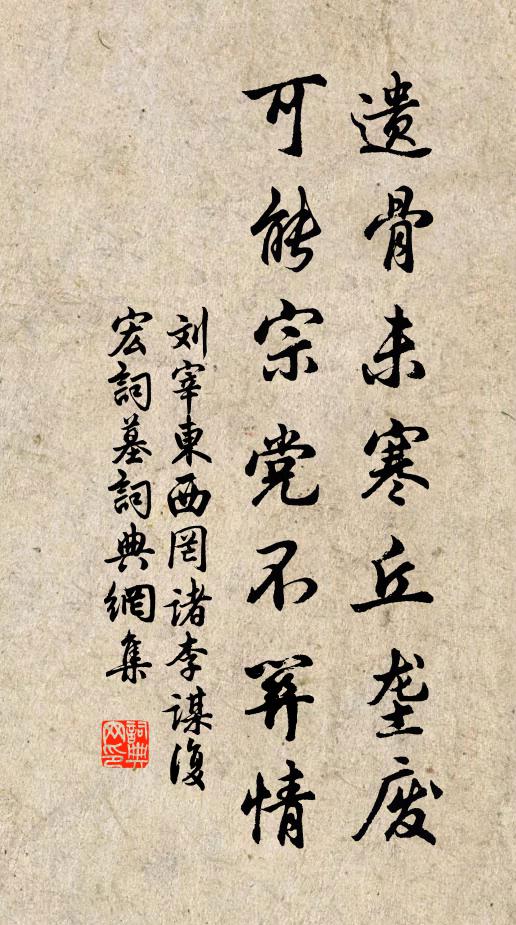 遗骨未寒丘垄废
可能宗党不関情
刘宰東西岡诸李谋復
宏詞墓詞典網集
詞典
网印